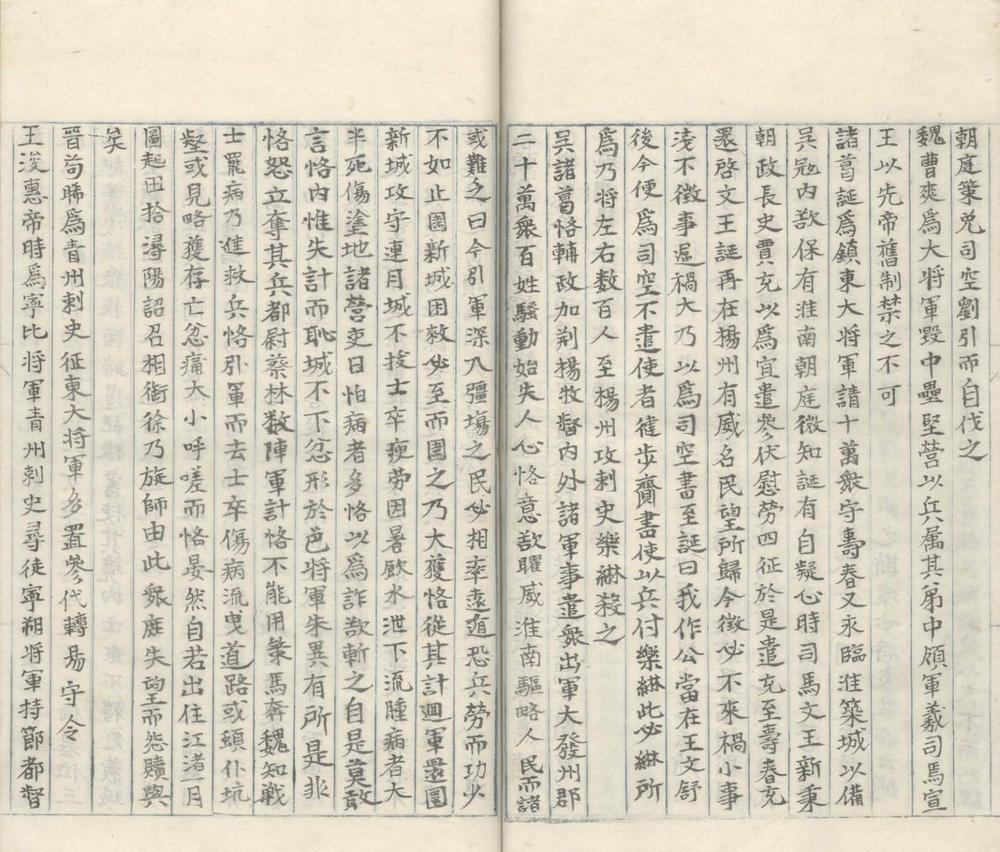 朝庭策免司空劉引而自伐之
魏曹爽爲大將軍毀中壘堅營以兵属其弟中領軍羲司馬宣
王以先帝舊制禁之不可
諸葛誕爲鎮東大將軍請十萬衆守壽春又永臨淮築城以備
吴寇内欲保有淮南朝庭微知誕有自疑心時司馬文王新秉
朝政長史賈充以爲宜遣參伏慰勞四征於是遣充至壽春充
還啓文王誕再在揚州有威名民望所歸今徵必不來禍小事
淺不徵事遲禍大乃以爲司空書至誕曰我作公當在王文舒
後今便爲司空不遣使者徤步齎書使以兵付樂綝此必綝所
爲乃将左右数百人至楊州攻刺史樂綝殺之
吴諸葛恪輔政加荆楊牧督内外諸軍事遣衆出軍大發州郡
二十萬衆百姓騷動始失人心恪意欲曜威淮南驅略人民而諸
或難之曰今引軍深入疆埸之民必相率遠遁恐兵勞而功少
不如止圍新城困救必至而圖之乃大獲恪從其計迴軍還圍
新城攻守連月城不拔士卒疲劳因暑飲水泄下流腫病者大
半死傷塗地諸營吏日怕病者多恪以爲詐欲斬之自是莫敢
言恪内惟失計而恥城不下忿形於色將軍朱異有所是非
恪怒立奪其兵都尉蔡林数陣軍計恪不能用策馬奔魏知戰
士罷病乃進救兵恪引軍而去士卒傷病流曳道路或頓仆坑
壑或見略獲存亡忿痛大小呼嗟而恪晏然自若出住江渚一月
圖起田於潯陽詔召相銜徐乃旋師由此衆庶失望而怨黷興
矣
晉荀晞爲青州刺史征東大将軍多置參代轉易守令
王浚惠帝時爲寧比將軍青州刺史尋徙寧朔將軍持節都督